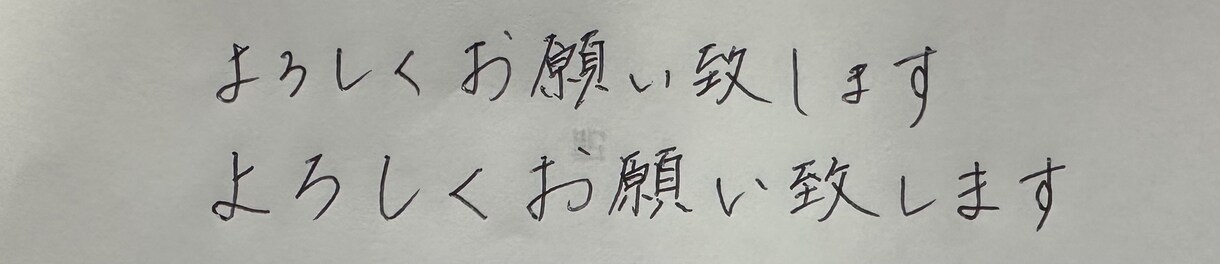 よろしくお願い致します
よろしくお願い致します